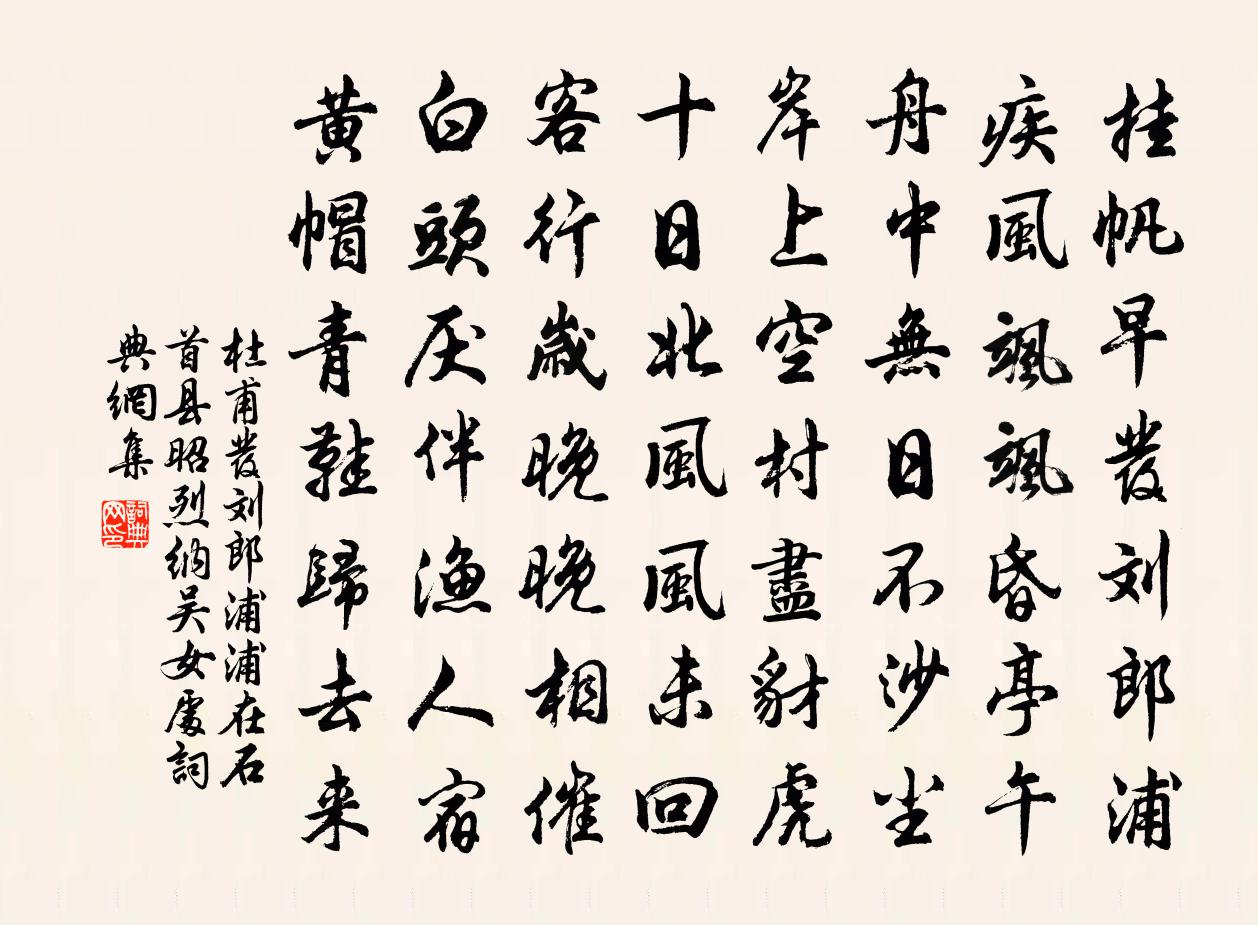 挂帆早發刘郎浦
疾風颯颯昏亭午
舟中無日不沙尘
岸上空村盡豺虎
十日北風風未回
客行歲晚晚相催
白頭厌伴漁人宿
黄帽青鞋歸去来
杜甫發刘郎浦浦在石
首县昭烈纳吴女處詞
典網集
詞典网印